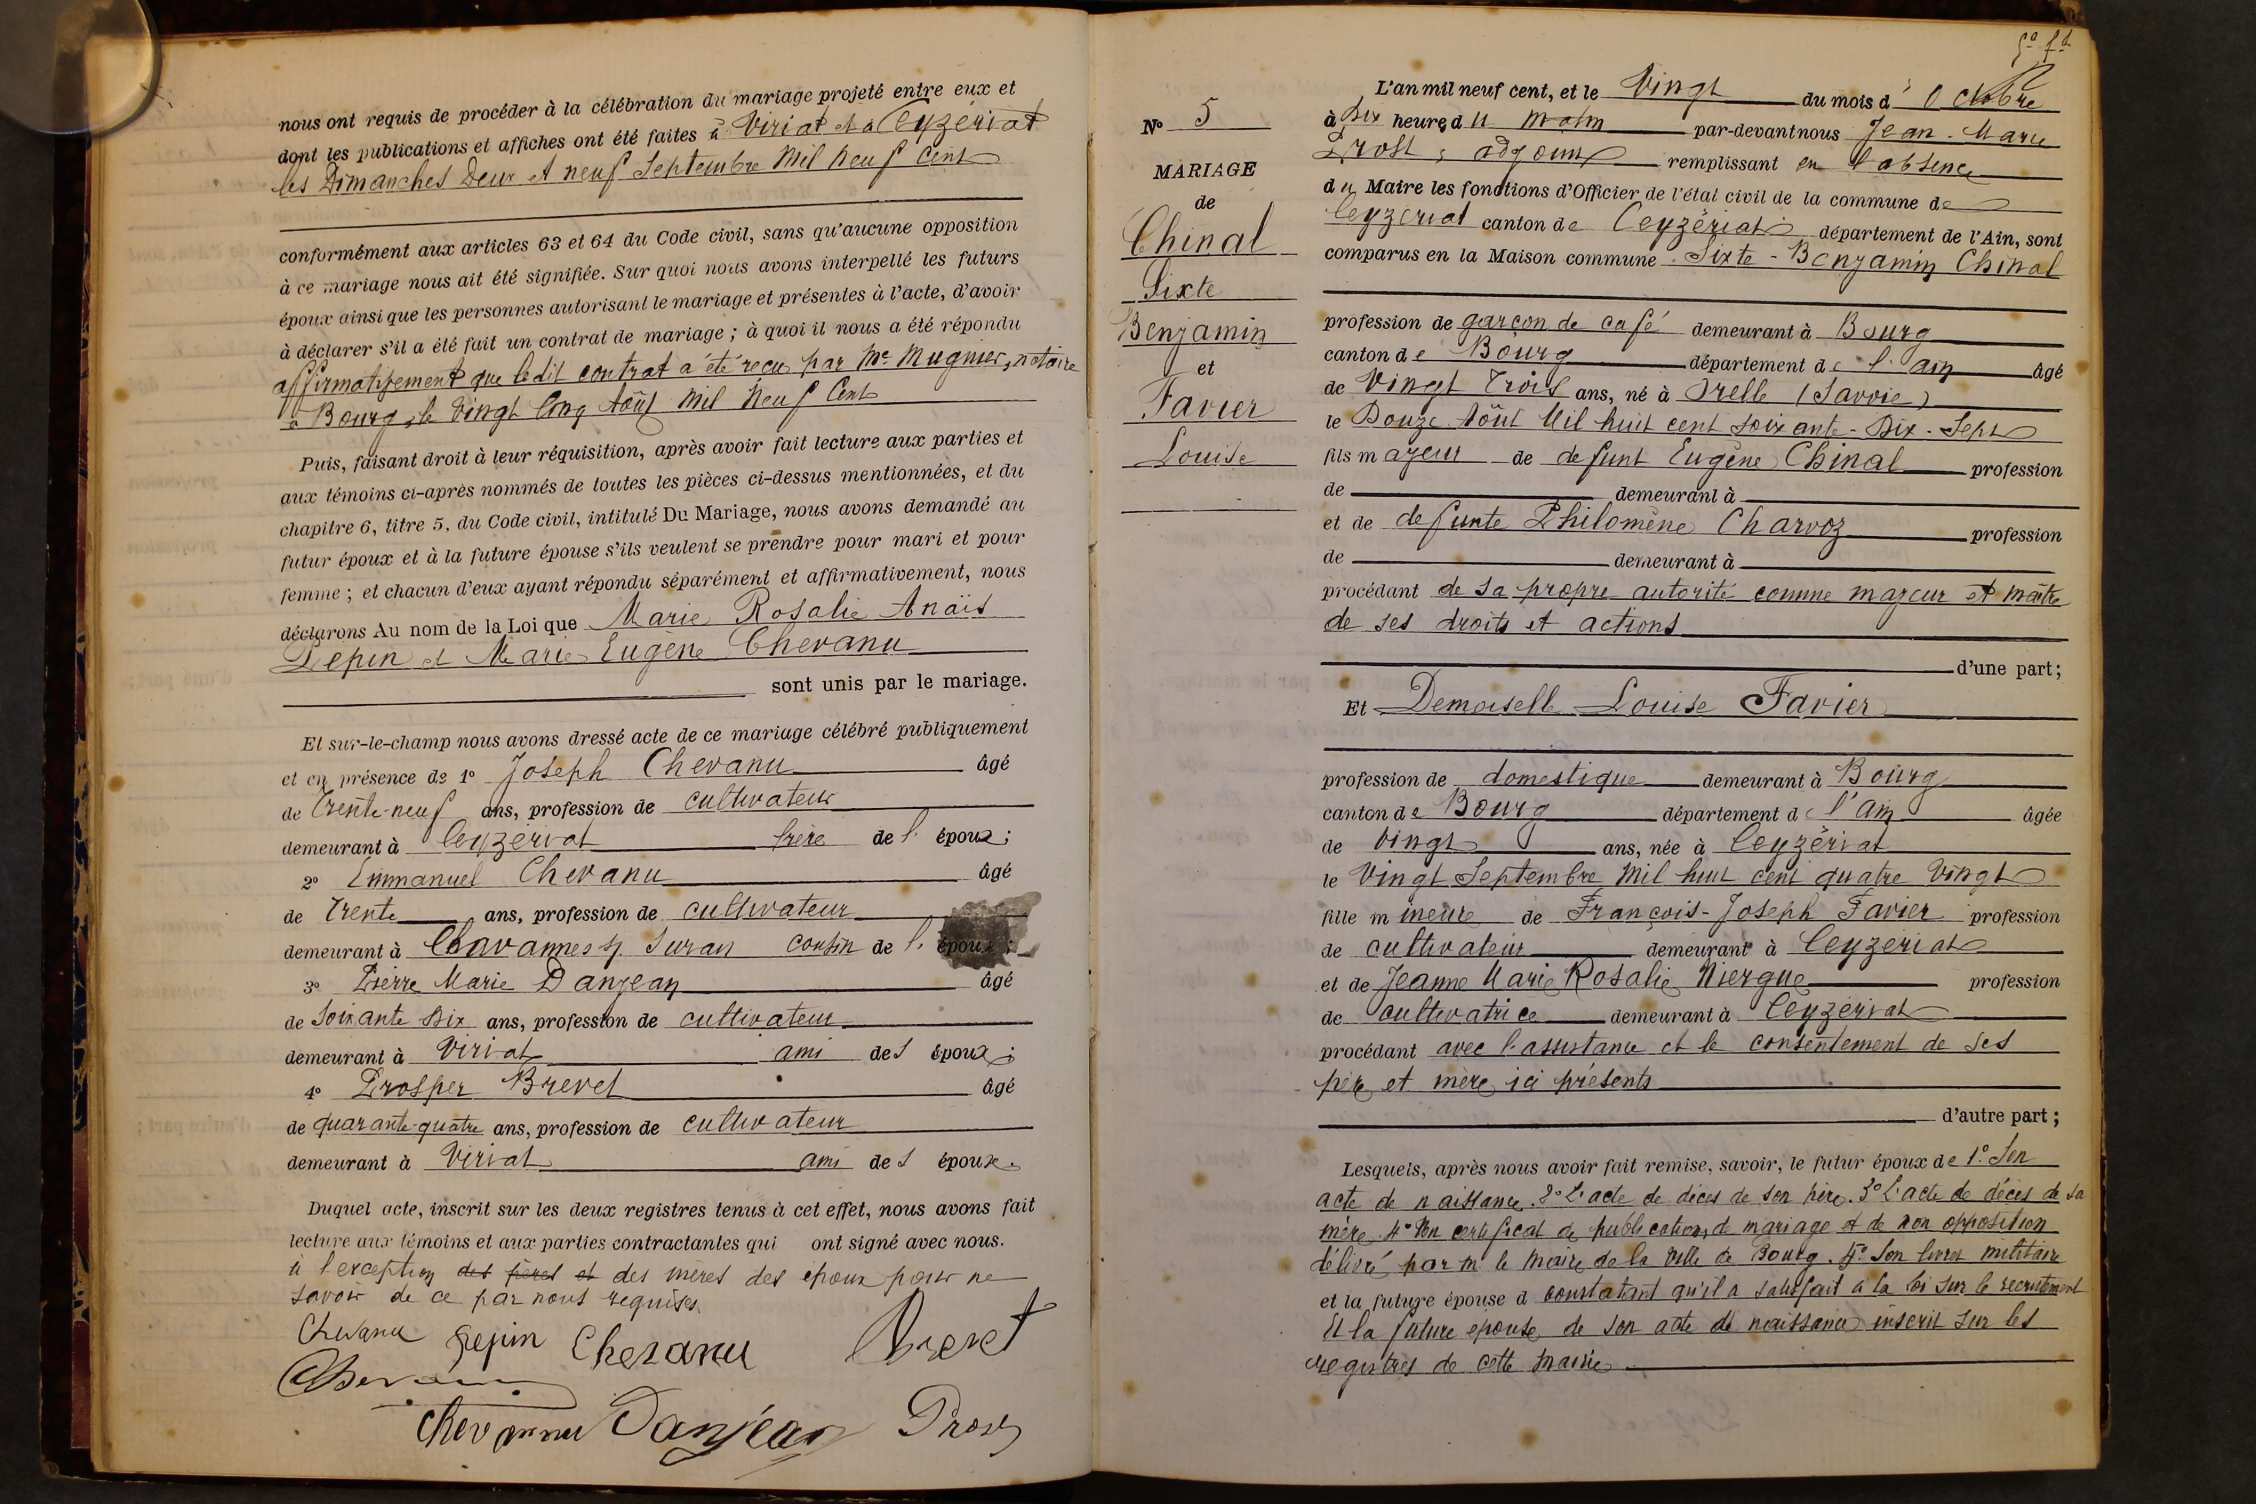 nous ont requis de procéder à la célébration du mariage projeté entre eux et
dont les publications et affiches ont été faites à Viriat et à Ceyzériat
les Dimanches Deux et neuf Septembre Mil neuf cent
conformément aux articles 63 et 64 du Code civil, sans qu'aucune opposition
à ce mariage nous ait été signifiée. Sur quoi nous avons interpellé les futurs
époux ainsi que les personnes autorisant le mariage et présentes à l'acte, d'avoir
à déclarer s'il a été fait un contrat de mariage ; à quoi il nous a été répondu
affirmativement que le dit contrat a été reçu par Me Mugnier, notaire
à Bourg, le Vingt Cinq Août Mil Neuf Cent
Puis, faisant droit à leur réquisition, après avoir fait lecture aux parties et
aux témoins ci-après nommés de toutes les pièces ci-dessus mentionnées, et du
chapitre 6, titre 5, du Code civil, intitulé Du Mariage, nous avons demandé au
futur époux et à la future épouse s'ils veulent se prendre pour mari et pour
femme ; et chacun d'eux ayant répondu séparément et affirmativement, nous
déclarons Au nom de la Loi que Marie Rosalie Anaïs
Pepin et Marie Eugène Chevanu
sont unis par le mariage.
Et sur-le-champ nous avons dressé acte de ce mariage célébré publiquement
et en présence de 1º Joseph Chevanu âgé
de Trente-neuf ans, profession de cultivateur
demeurant à Ceyzériat frère de l' époux ;
2º Emmanuel Chevanu âgé
de Trente ans, profession de cultivateur
demeurant à Chavannes s/ Suran cousin de l' époux ;
3º Pierre Marie Danjean âgé
de Soixante Dix ans, profession de cultivateur
demeurant à Viriat ami des époux ;
4º Prosper Brevet âgé
de quarante-quatre ans, profession de cultivateur
demeurant à Viriat ami des époux.
Duquel acte, inscrit sur les deux registres tenus à cet effet, nous avons fait
lecture aux témoins et aux parties contractantes qui ont signé avec nous.
à l'exception des pères et des mères des époux pour ne
savoir de ce par nous requises
Chevanu Pepin Chevanu Brevet
Chevanu
Chevanu Danjean Prost
Nº 5
MARIAGE
de
Chinal
Sixte
Benjamin
et
Favier
Louise
L'an mil neuf cent, et le Vingt du mois d' Octobre
à Dix heures du matin par-devant nous Jean-Marie
Prost, adjoint remplissant en l'absence
du Maire les fonctions d'Officier de l'état civil de la commune de
Ceyzériat canton de Ceyzériat département de l'Ain, sont
comparus en la Maison commune Sixte-Benjamin Chinal
profession de garçon de café demeurant à Bourg
canton de Bourg département de l'Ain âgé
de Vingt Trois ans, né à Orelle (Savoie)
le Douze Août Mil huit cent soixante-Dix-Sept
fils majeur de defunt Eugène Chinal profession
de demeurant à
et de defunte Philomène Charvoz profession
de demeurant à
procédant de sa propre autorité comme majeur et maître
de ses droits et actions
d'une part ;
Et Demoiselle Louise Favier
profession de domestique demeurant à Bourg
canton de Bourg département de l'Ain âgée
de Vingt ans, née à Ceyzériat
le Vingt Septembre Mil huit cent quatre Vingt
fille mineure de François-Joseph Favier profession
de cultivateur demeurant à Ceyzériat
et de Jeanne Marie Rosalie Niergue profession
de cultivatrice demeurant à Ceyzériat
procédant avec l'assistance et le consentement de ses
père et mère ici présents
d'autre part ;
Lesquels, après nous avoir fait remise, savoir, le futur époux de 1º Son
acte de naissance. 2º L'acte de décès de son père. 3º L'acte de décès de sa
mère. 4º Un certificat de publications de mariage et de non opposition
délivré par Mr le Maire de la Ville de Bourg. 5º Son livret militaire
et la future épouse d constatant qu'il a satisfait à la loi sur le recrutement
Et la future épouse de son acte de naissance inscrit sur les
registres de cette mairie.